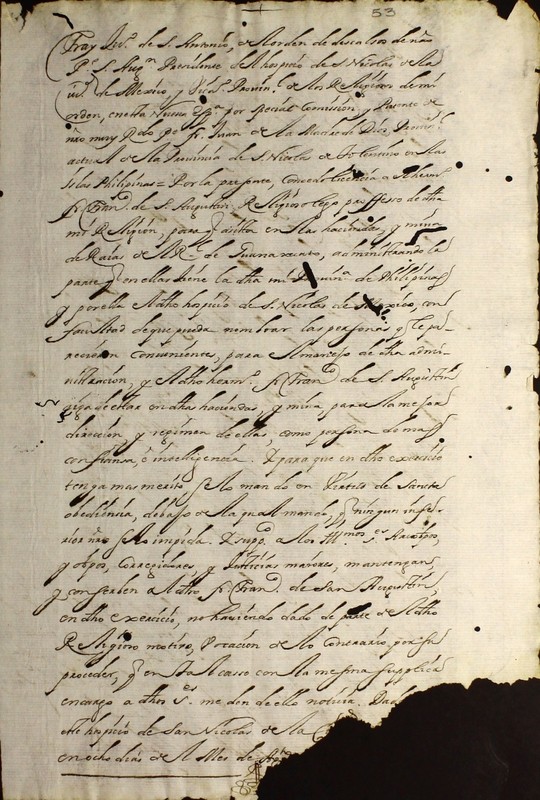 53
Fray Jos. de S. Antonio, de el orden de descalsos de nrō
Pe. S. Augn. Presidente de el hospicio de S. Nicolas de la
ciud. de Mexico, y Vicao. Provin.l de los Religiosos de mi
orden, en esta Nueva Espa. por special Comision, y Patente de
nrō muy Rdo. Pe. fr. Juan de la Madre de Dios, Provinl.
actual de la Provincia de S. Nicolas de Tolentino en las
Islas Philipinas = Por la presente, concedo licencia a el herno.
fr. Franco. de S. Augustin Religioso lego professo de dha
mi Religion, para q asista en las haciendas, y mina
de Raias de el Rl. de Guanaxuato, administrando la
parte q en ellas tiene la dha mi Provina. de Philipinas
y por ella el dho hospicio de S. Nicolas de Mexico, con
facultad de que pueda nombrar las personas q le pa-
recieren convenientes, para el manejo de dha admi-
nistracion, y el dho herno. fr. Franco. de S. Augustin
siga de estar en dhas haciendas, y mina, para la mejor
direccion y regimen de ellas, como persona de mas
confiansa, e inteligencia. Y para que en dho exercicio
tenga mas merito se lo mando en Virtud de Santa
obediencia, debajo de la qual mando, q ningun infe-
rior nrō se lo impida. Y supco. a los Illmos. Ses. Arzobpos,
y obpos, Corregidores, y Justicias maiores, mantengan,
y conserben a el dho fr. Franco. de San Augustin,
en dho exercicio, no haviendo dado de parte de el dho
Religioso motivo, u ocacion de lo contrario, por su
proceder, q en tal casso con la mesma supplica
encargo a dhos Ses. me den de ello noticia. Dada
este hospicio de San Nicolas de la
en ocho dias de el Mes de Agto